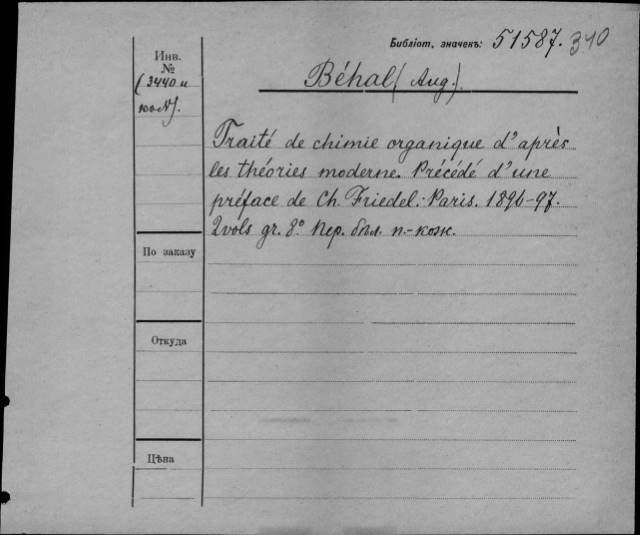 Библіот. значекъ: 51587. 310
Инв.
№
(3440 и
Béhal (Aug.)
Traité de chimie organique d'après
les théories moderne. Précédé d'une
préface de Ch. Friedel. Paris. 1896-97.
2 vols gr. 8° Пер. бѣл. п.-кож.
По заказу
Откуда
Цѣна